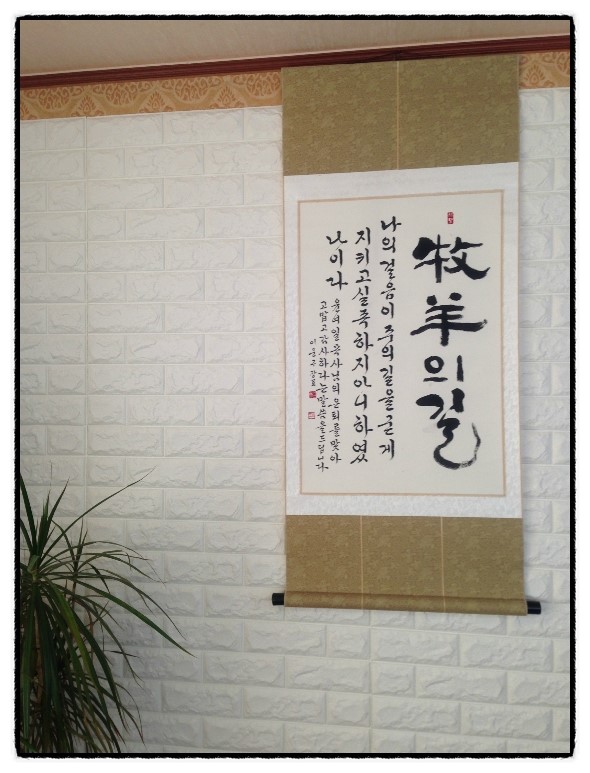 牧羊의길
나의걸음이주의길을굳게
지키고실족하지아니하였
나이다
고맙고감사하다는말씀을드립니다